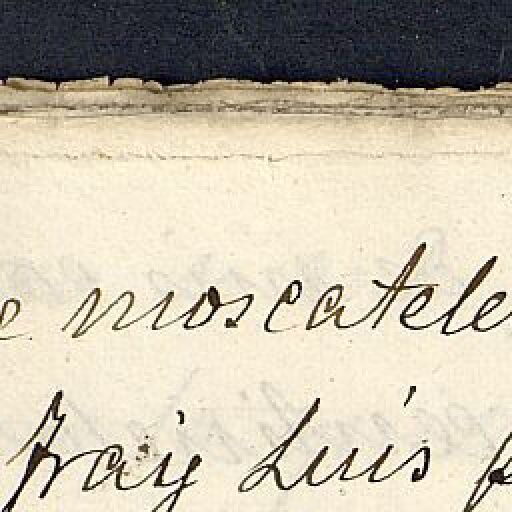 moscatele
Fray Luis